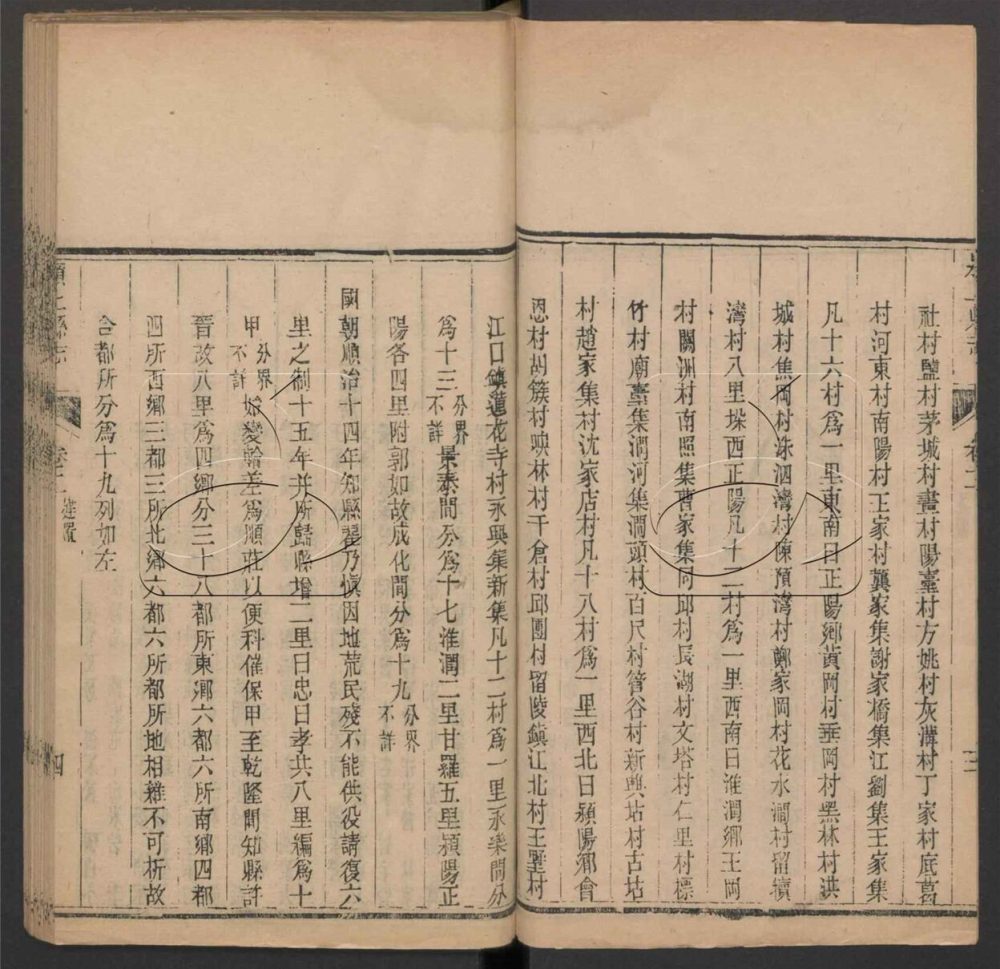 社村鹽村茅城村晝村陽臺村方姚村灰溝村丁家村底葛
村河東村南陽村王家村龔家集謝家橋集江劉集王家集
凡十六村爲一里東南曰正陽鄉黃岡村垂岡村黑林村洪
城村焦岡村洙泗灣村陳預灣村鄭家岡村花水澗村留犢
灣村八里垛西正陽凡十二村爲一里西南曰淮潤鄉王岡
村關洲村南照集曹家集向邱村長湖村文塔村仁里村標
竹村廟臺集潤河集潤頭村百尺村管谷村新興坫村古坫
村趙家集村沈家店村凡十八村爲一里西北曰潁陽鄉會
恩村胡簇村映林村干倉村邱團村留陵鎮江北村王墅村
江口鎮蓮花寺村永興集新集凡十二村爲一里永樂間分
爲十三分界不詳景泰間分爲十七淮潤二里甘羅五里潁陽正
陽各四里附郭如故成化間分爲十九分界不詳
國朝順治十四年知縣翟乃愼因地荒民殘不能供役請復六
里之制十五年并所歸縣增二里曰忠曰孝共八里編爲十
甲分界不詳始變輪差爲順莊以便科催保甲至乾隆間知縣許
晉改八里爲四鄉分三十八都所東鄉六都六所南鄉四都
四所西鄉三都三所北鄉六都六所都所地相雜不可析故
合都所分爲十九列如左
潁上縣志
卷二
建置
四